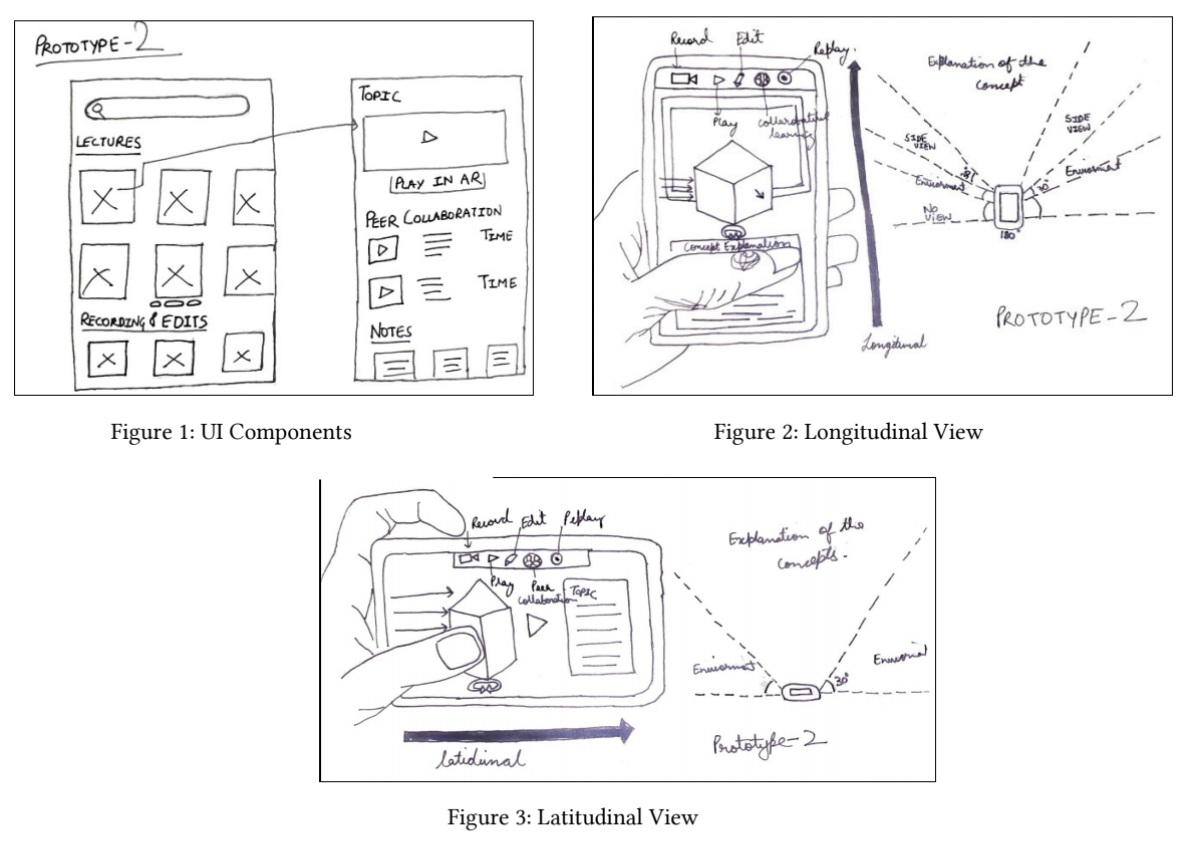 PROTOTYPE-2
LECTURES
RECORDING & EDITS
TOPIC
PLAY IN AR
PEER COLLABORATION
TIME
TIME
NOTES
Figure 1: UI Components
Record
Edit
Replay.
Play
learning
Concept Explanation
Longitunal
Explanation of the
concept
SIDE
VIEW
SIDE
VIEW
Enviorment
Enviorment
30°
NO
VIEW
180°
PROTOTYPE-2
Figure 2: Longitudinal View
Record
Edit
Replay
Play
Peer
Collaboration
TOPIC
latidunal
Explanation of the
concepts.
Enviorment
30°
Prototype-2
Figure 3: Latitudinal View